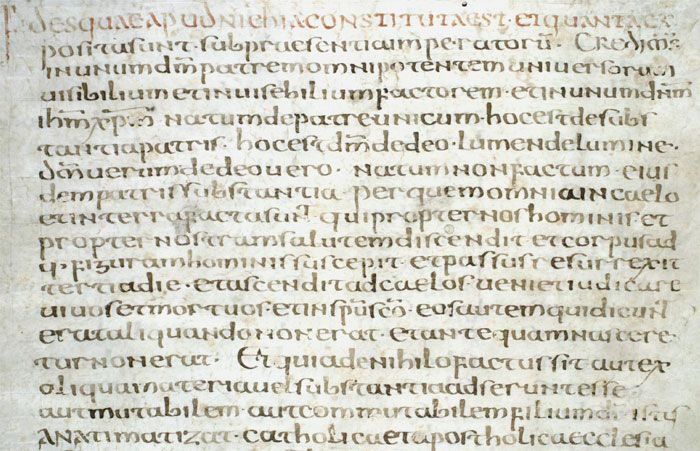 FIDES QUAE APUD NICHIA CONSTITUTA EST · ET QUANTA EX
positasunt · sub praesentia imperatorũ · Credimus
in unum dm̅ patrem omnipotentem universorum
visibilium et invisebilium factorem · et in unum dn̅m
ih̅m xp̅m natum de patre unicum · hoc est de subs
tantia patris · hoc est dm̅ de deo · lumen de lumine ·
dm̅ verum de deo vero · natum non factum · eius
dem patris substantia · per quem omnia in caelo
et in terra facta sunt · qui propter nos hominis et
propter nostram salutem discendit et corpus ad
q · figuram hominis suscepit et passus resurrexit
tertia die · et ascendit ad caelos · veniet iudicare
vivos et mortuos · et in sp̅u sc̅o · eos autem qui dicunt
erat aliquando non erat · et ante quam nascere
tur non erat · Et quia de nihilo factus sit aut ex
aliqua materia vel substantia adserunt esse
aut mutabilem · aut commutabilem filium di̅ istos
anatimatizat · catholica et apostholica ecclesia